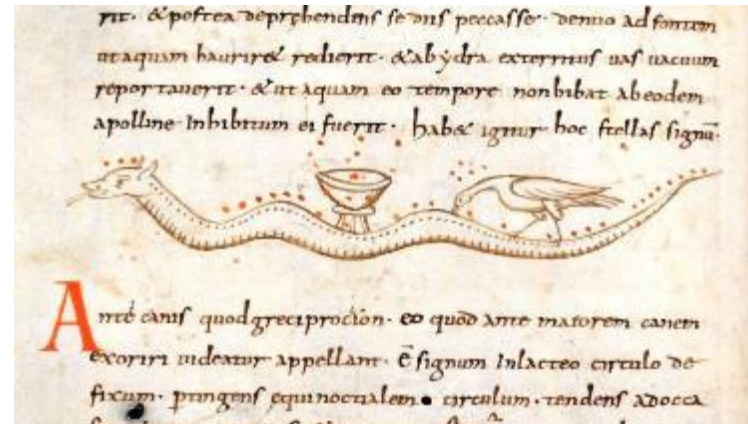 rit. & postea deprehendens se dns peccasse. denuo ad fontem
ut aquam haurir& redierit. & ab ydra exterritus uas uacuum
reportauerit. & ut aquam eo tempore non bibat ab eodem
apolline Inhibitum ei fuerit. hab& igitur hoc stellas signū.
Ante canis quod greci procion. eo quod Ante maiorem canem
exoriri uideatur appellant. ē signum In lacteo circulo de
fixum. ptingens equinoctialem circulum. tendens ad occa